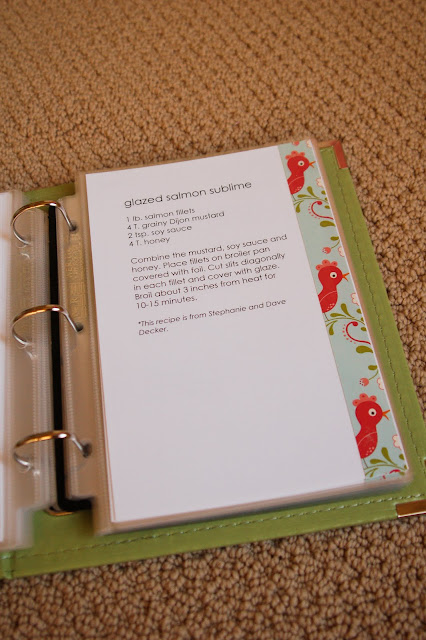 glazed salmon sublime
1 lb. salmon fillets
4 T. grainy Dijon mustard
2 tsp. soy sauce
4 T. honey
Combine the mustard, soy sauce and
honey. Place fillets on broiler pan
covered with foil. Cut slits diagonally
in each fillet and cover with glaze.
Broil about 3 inches from heat for
10-15 minutes.
*This recipe is from Stephanie and Dave
Decker.